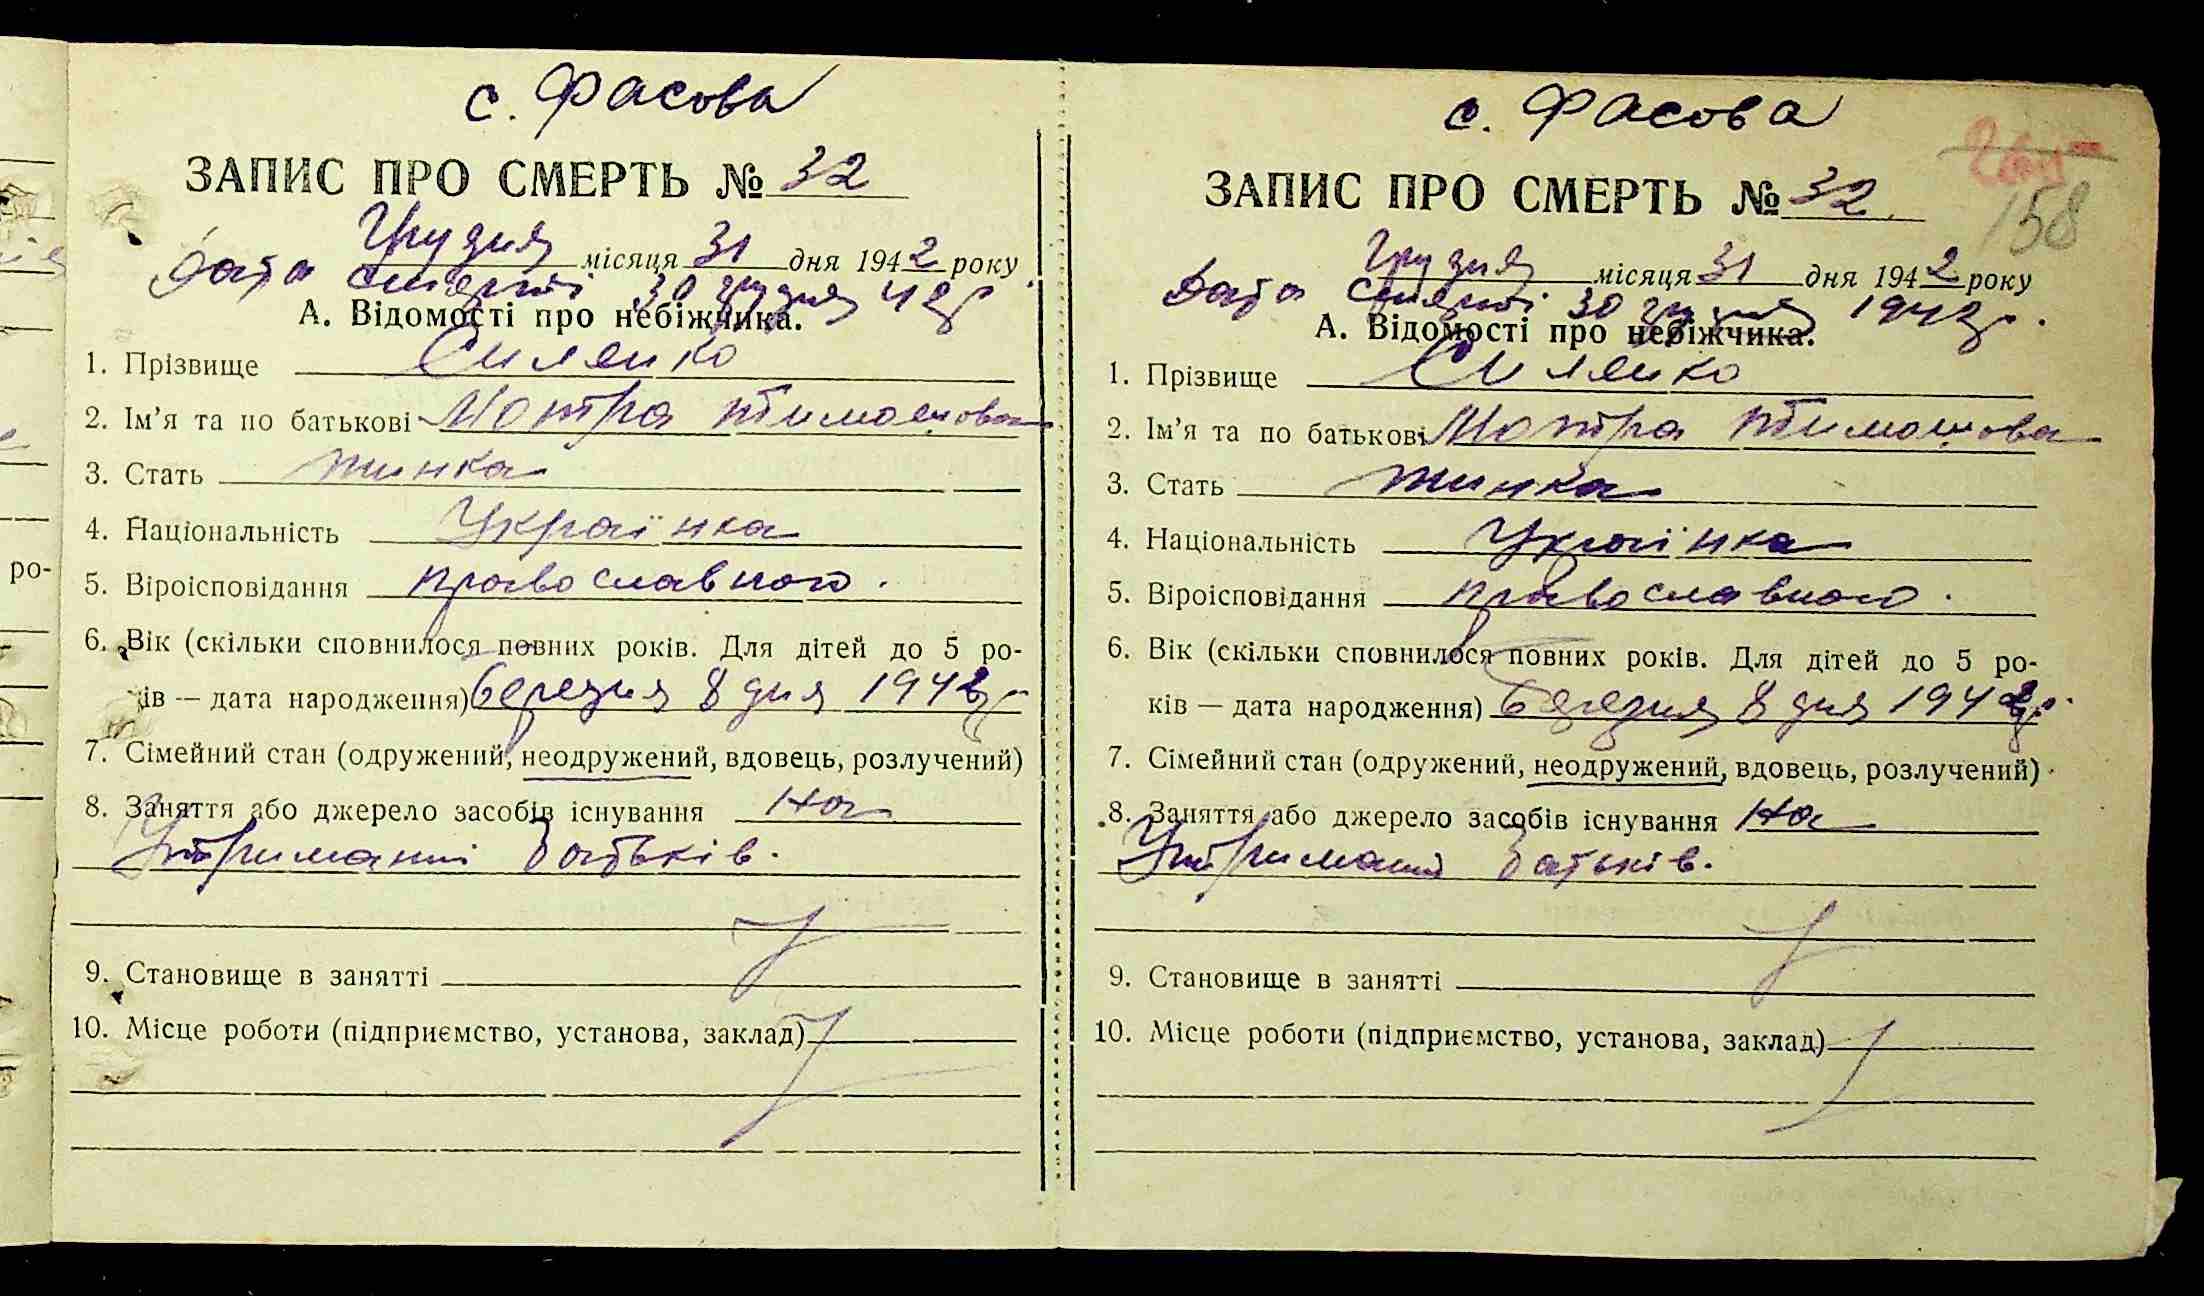 с. Фасова
ЗАПИС ПРО СМЕРТЬ № 32
Грудня місяця 31 дня 1942 року
Дата смерті 30 грудня 42 р
А. Відомості про небіжчика.
1. Прізвище Силенко
2. Ім'я та по батькові Мотря Тимошова
3. Стать жинка
4. Національність Українка
5. Віроісповідання православного.
6. Вік (скільки сповнилося повних років. Для дітей до 5 ро-
ів — дата народження) березня 8 дня 1942 р
7. Сімейний стан (одружений, неодружений, вдовець, розлучений)
8. Заняття або джерело засобів існування на
Утриманні батьків.
9. Становище в занятті
10. Місце роботи (підприємство, установа, заклад)
с. Фасова
158
ЗАПИС ПРО СМЕРТЬ № 32
Грудня місяця 31 дня 1942 року
Дата смерті 30 грудня 1942 р.
А. Відомості про небіжчика.
1. Прізвище Силенко
2. Ім'я та по батькові Мотря Тимошова
3. Стать жинка
4. Національність Українка
5. Віроісповідання православного.
6. Вік (скільки сповнилося повних років. Для дітей до 5 ро-
ків — дата народження) березня 8 дня 1942 р.
7. Сімейний стан (одружений, неодружений, вдовець, розлучений)
8. Заняття або джерело засобів існування на
Утриманні батьків.
9. Становище в занятті
10. Місце роботи (підприємство, установа, заклад)
ро-